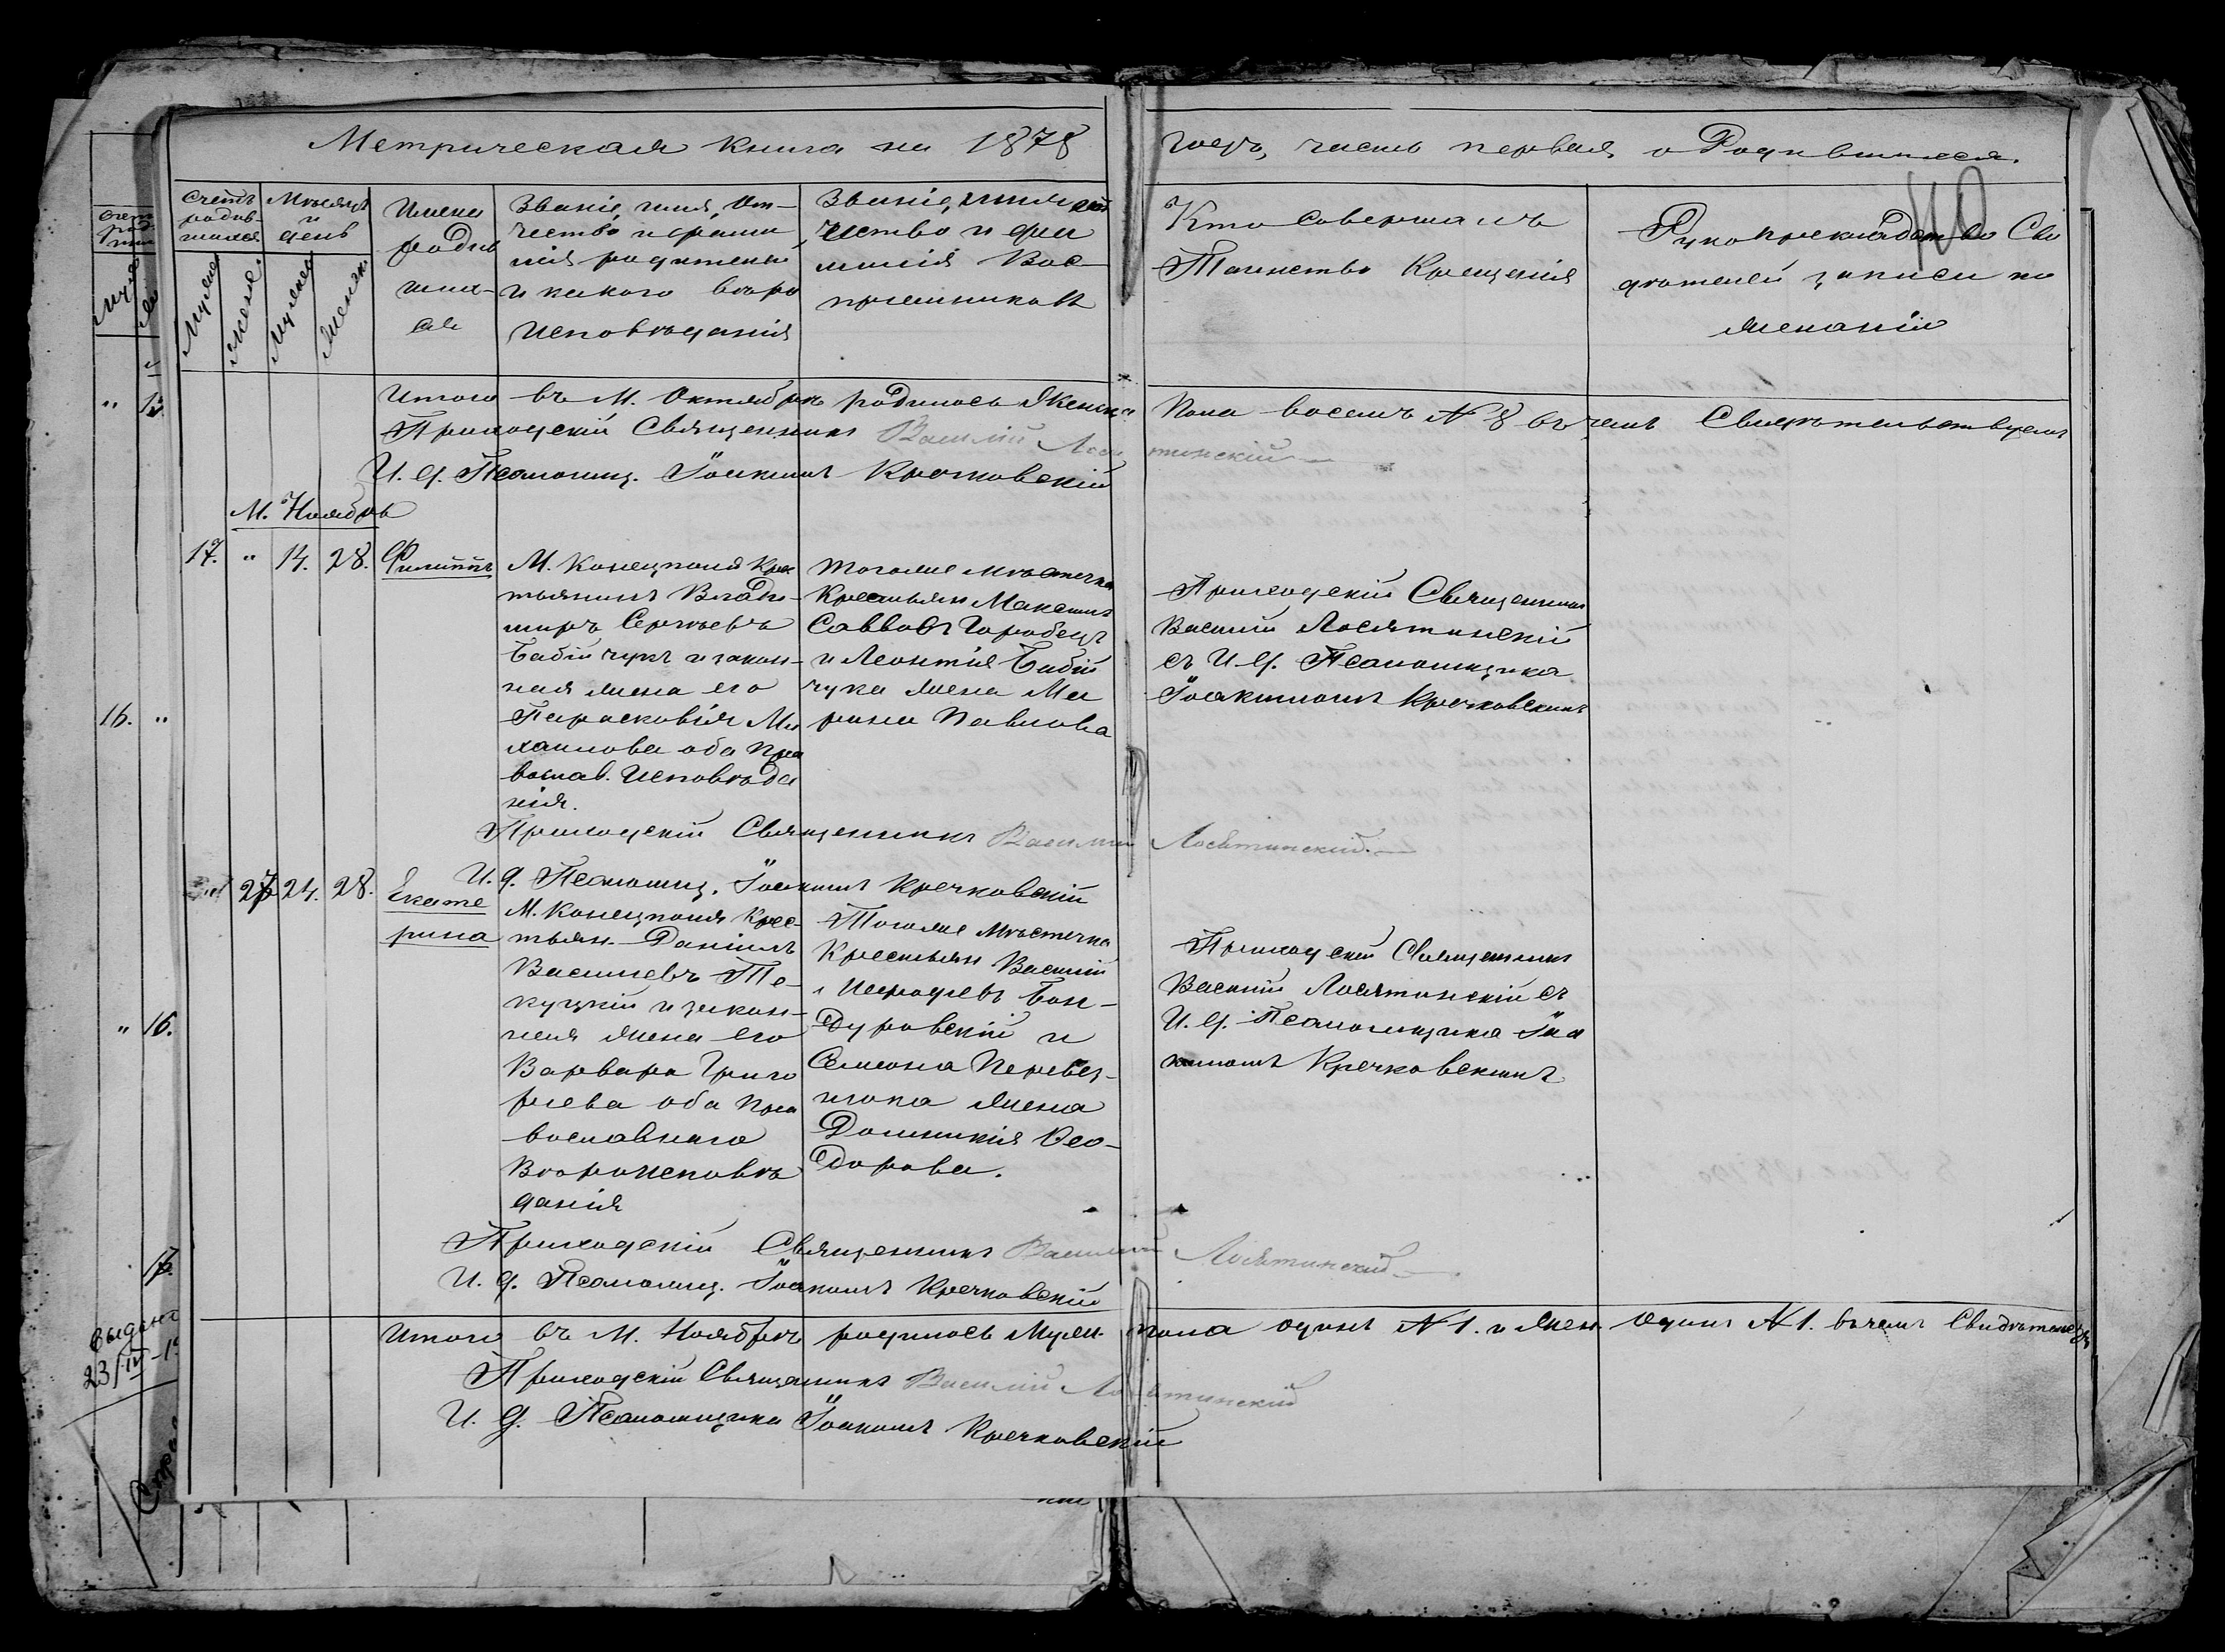 Метрическая книга на 1878 годъ, часть первая о Родившихся.
110
Счетъ родив-шихся
Мѣсяцъ и день
Имена родив шихся
Званіе, имя, от-
чество и фами
лія родителей
и какого вѣро
исповѣданія
Званіе, имя от
чество и фа
милія Вос-
пріемниковъ
Кто совершалъ
Таинство Крещенія
Рукоприкладство Сви
дѣтелей записи по
желанію
Мужеска
Женска
Мужеска
Женска
Итого въ М. Октябрѣ родилось Женска пола восемь N 8 въ чемъ Свидѣтельствуемъ
Приходскій Священникъ Василій Лосятинскій
И. д. Псаломщ. Іоакимъ Кречковскій
М. Ноябрь
17. „ 14. 28. Филиппъ
М. Конецполя Крес
тьянинъ Влади-
миръ Сергѣевъ
Бабійчукъ и закон-
ная жена его
Парасковія Ми
хаилова оба Пра
вослав. Исповѣда
нія.
Тогоже мѣстечка
Крестьян Максимъ
Саввовъ Горобецъ
и Леонтія Бабій
чука жена Ма
рина Павлова
Приходскій Священникъ
Василій Лосятинскій
съ И. д. Псаломщика
Іоакимомъ Кречковскимъ
Приходскій Священникъ Василій Лосятинскій.
И. д. Псаломщ. Іоакимъ Кречковскій
„ 27 24. 28. Екате
рина
М. Конецполя Крес-
тьян. Даніилъ
Василіевъ Те-
куцкій и закон-
ная жена его
Варвара Григо
ріева оба Пра
вославнаго
Вѣроисповѣ
данія
Тогоже мѣстечка
Крестьян Василій
Иерофіевъ Бон-
дуровскій и
Семиона Перевоз-
ника жена
Домникія Ѳео-
дорова.
Приходскій Священникъ
Василій Лосятинскій съ
И. д. Псаломщика Іоа
кимомъ Кречковскимъ
Приходскій Священникъ Василій Лосятинскій
И. д. Псаломщ. Іоакимъ Кречковскій
Итого въ М. Ноябрѣ родилось Муж. пола одинъ N 1. и Жен. одинъ N 1. въ чемъ Свидѣтельств
Приходскій Священникъ Василій Лосятинскій
И. д. Псаломщика Іоакимъ Кречковскій
16. „
„ 16.
17.